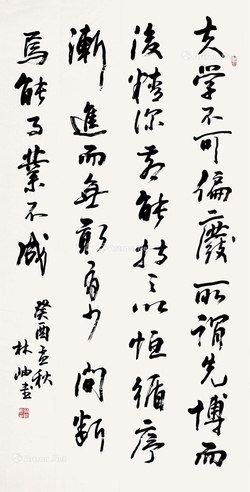 夫学不可偏废所谓先博而
后精深而能持之以恒循序
渐进而无敢有少间断
焉能事业不成
癸酉立秋
林岫书